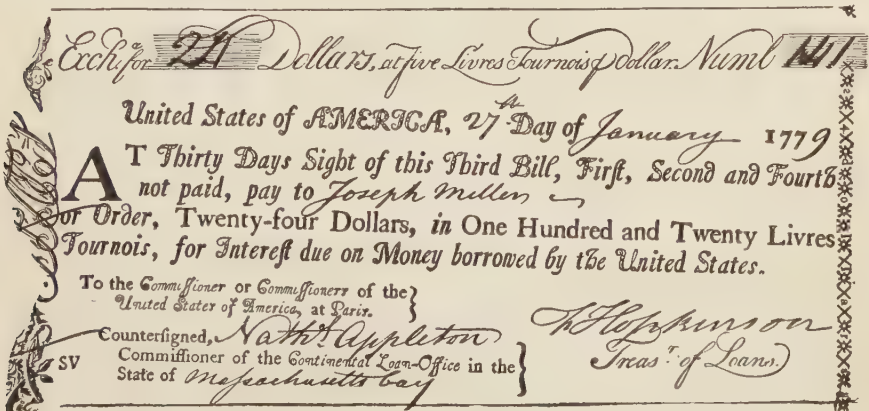 Exch.ª for 24 Dollars, at five Livres Tournois ꝑ Dollar. Numb. 141
United States of AMERICA, 27th Day of January 1779
AT Thirty Days Sight of this Third Bill, Firſt, Second and Fourth
not paid, pay to Joseph Miller
or Order, Twenty-four Dollars, in One Hundred and Twenty Livres
Tournois, for Intereſt due on Money borrowed by the United States.
To the Commiſſioner or Commiſſioners of the
United States of America, at Paris.
Counterſigned, Nath.l Appleton
SV Commiſſioner of the Continental Loan-Office in the
State of Massachusetts bay
F Hopkinson
Treas.r of Loans.